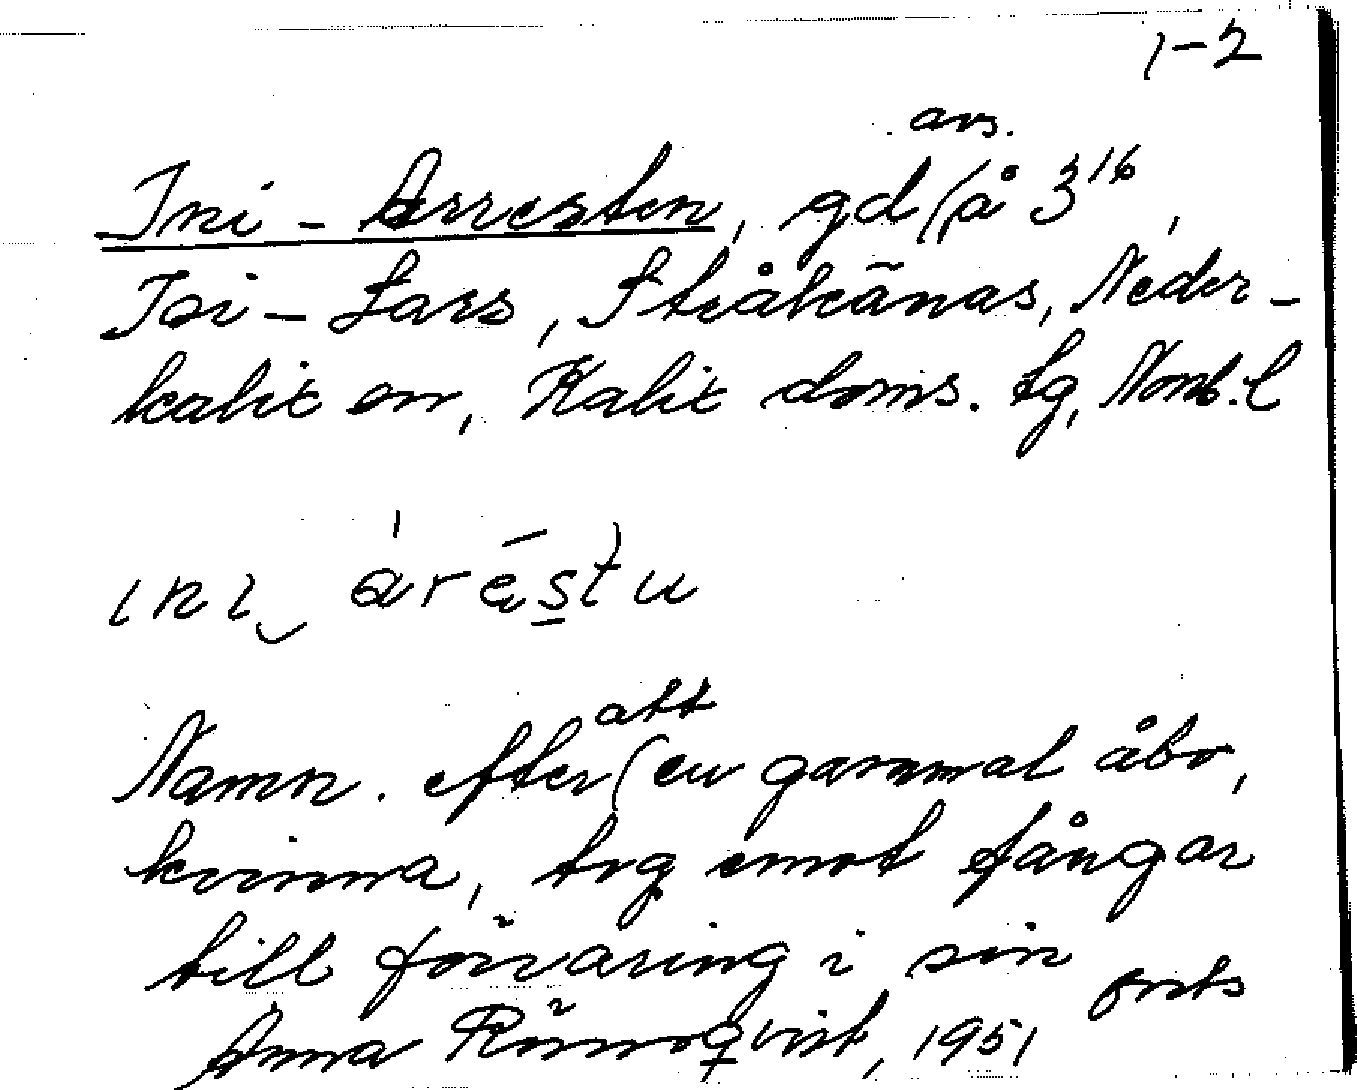 1-2
avs.
Ini-Arresten, gd (på 3¹⁶,
Isi-Lars, Stråkänas, Neder-
kalix sn, Kalix doms. tg, Norrb. l
ini arestu
att
Namn. efter (en gammal åbo,
kvinna, tog emot fångar
till förvaring i sin forts
Anna Rönnqvist, 1951